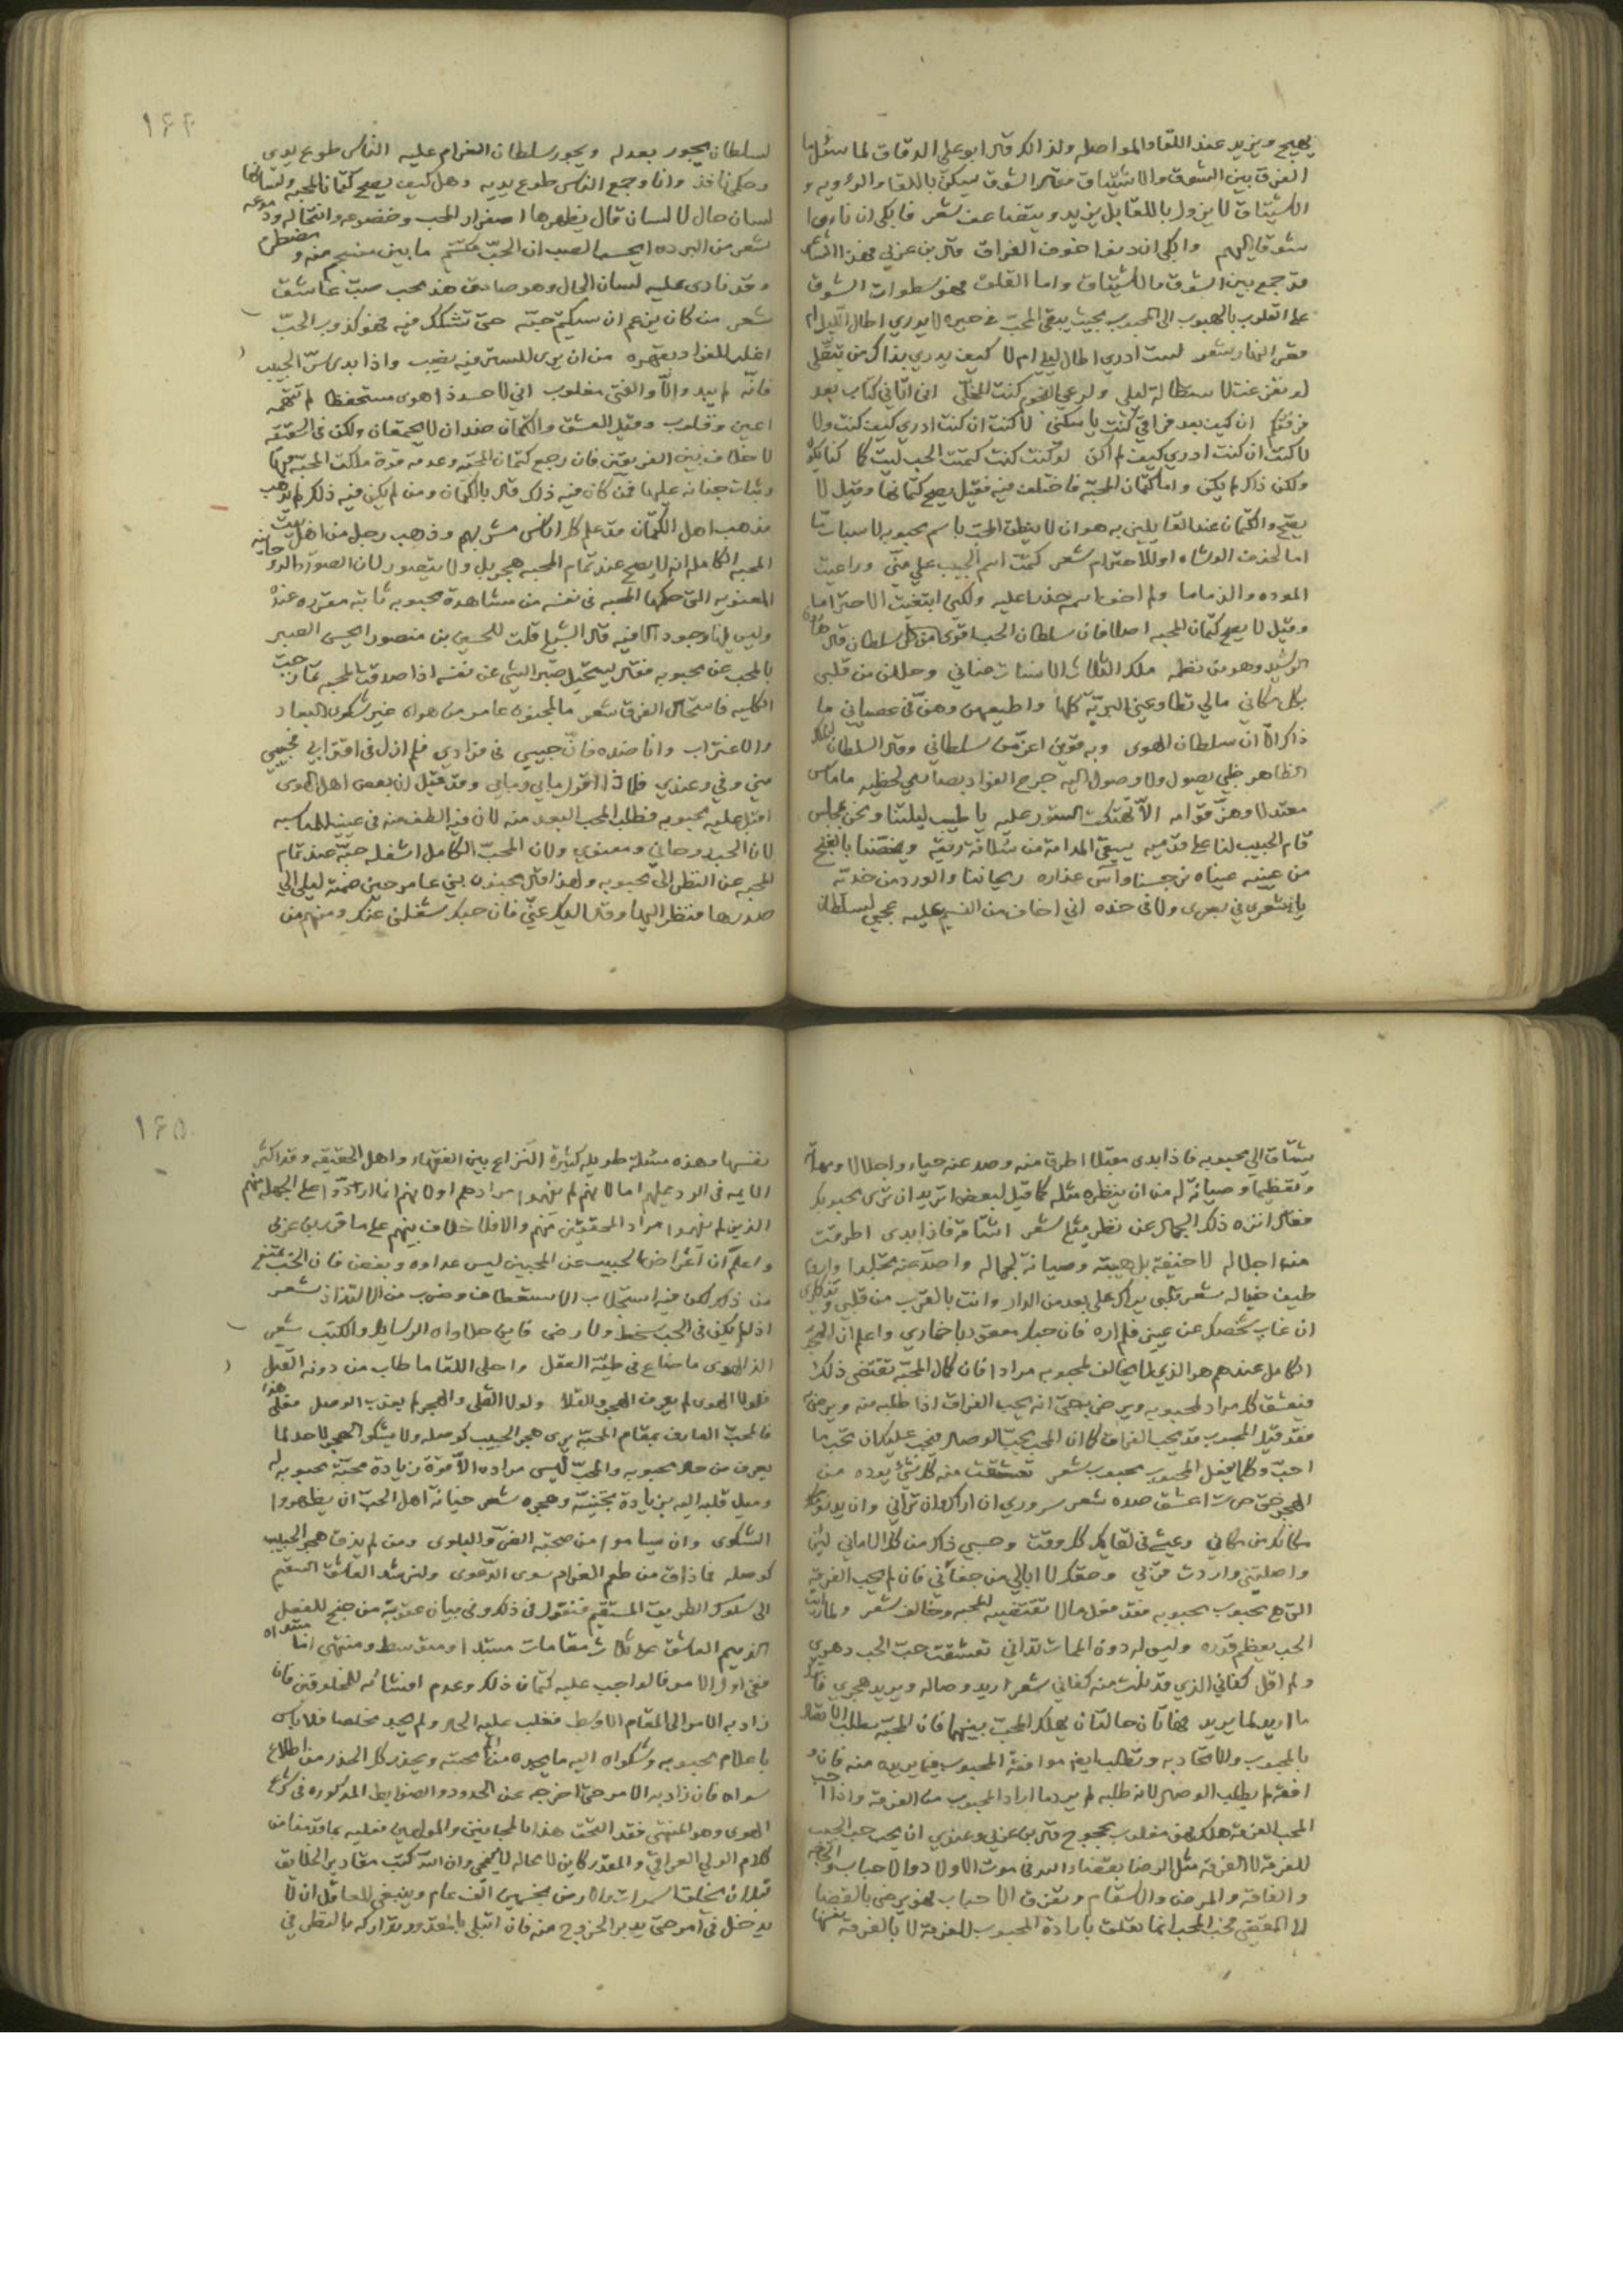 يهيج ويزيد عند اللقا والمواصله ولذالك قال ابو علي الدقاق لما سئل ما
الفرق بين الشوق والاشتياق فقال الشوق يسكن باللقا والرويه و
الاشتياق لا يزول باللقا بل يزيد ويتضاعف شعر فابكي ان ناوا
شوقا اليهم وابكي ان دنوا خوف الفراق قال بن عربي فهذا الشاعر
قد جمع بين الشوق والاشتياق واما القلق فهو سطوات الشوق
على القلوب بالهبوب الى المحبوب بحيث يبقى المحب في حيره لا يدري اطال الليل ام
قصر النهار شعر لست ادري اطال ليلي ام لا كيف يدري بذاك من يتقلى
لو تفرغت لاستطالة ليلي ولرعي النجوم كنت المخلى
ان كيف بعد فراقي كنت يا سكني لا كنت ان كنت ادري كيف كنت ولا
لا كنت ان كنت ادري كيف لم اكن لو كنت كنت كتمت الحب كنت كما كنا نكون
ولكن ذاك لم يكن واما كتمان المحبة فاختلف فيه فقيل يصح كتمانها وقيل لا
يصح والكتمان عند القايلين به هو ان لا ينطق المحب باسم محبوبه لاسباب
اما لخوف الوشاه او للاحترام شعر كتمت اسم الحبيب علي مني وراعيت
الموده والذماما ولم اخف اسمه حذرا عليه ولكني ابتغيت الاحتراما
وقيل لا يصح كتمان المحبه اصلا فان سلطان الحب اقوى من كل سلطان قال هارون
الرشيد وهو من نظمه ملك الثلاث الانسات عناني وحللن من قلبي
بكل مكاني مالي تطاوعني البرية كلها واطيعهن وهن في عصياني ما
ذاك الا ان سلطان الهوى وبه قوين اعز من سلطاني وقال السلطان الملك
الظاهر ظبي يصول ولا وصول اليه جرح الفواد بصارمي لحظيه ما ماس
معتدلا وهز قوامه الا تهتكت الستور عليه يا طيب ليلتنا ونحن بمجلس
قام الحبيب لنا على قدميه يسقي المدامة من سلافة ريقه ويخصنا بالغنج
من عينيه عيناه نرجسنا وآس عذاره ريحاننا والورد من خديه
يا شعري في بصري ولا في خده اني اخاف من النسيم عليه عجبي لسلطان
١٦٤
لسلطان يجور بعدله ويجور سلطان الغرام عليه الناس طوع يدي
وحكمي نافذ وانا وجمع الناس طوع يديه وهل كيف يصح كتمان المحبه ولسانها
لسان حال لا لسان قال يظهرها اصفرار المحب وخضوعه وانتحاله ودموعه
شعر من البرده ايحسب الصب ان الحب منكتم ما بين منسجم منه ومضطرم
وقد نادى عليه لسان الحال وهو صادق هذا محب صب عاشق
شعر من كان يزعم ان سيكتم حبه حتى تشكك فيه فهو كذوب الحب
اغلب للفواد بقهره من ان يرى للستر فيه نصيب واذا بدى سر الحبيب
فانه لم يبد والا والفتى مغلوب اني لاحسد ذا هوى مستحفظا لم تتهمه
اعين وقلوب وقيل العشق والكتمان ضدان لا يجتمعان ولكن في الحقيقه
لا خلاف بين الفريقين فان رجع كتمان المحبه وعدمه قوة ملكت المحبه
وثبات جنانه عليها فمن كان فيه ذلك قال بالكتمان ومن لم يكن فيه ذلك لم يذهب
مذهب اهل الكتمان قد علم كل اناس مشربهم وذهب رجل من اهل بيت
المحبه الكامله انه لا يصح عند تمام المحبه هجر بل ولا يتصور لان الصورة الروحانيه
المعنويه التي حكمها المحبه في نفسه من مشاهدة محبوبه ثابته مقرره عنده
وليس لها وجود الا فيه قال الشبلي قلت للحسين بن منصور ايحسن الصبر
بالمحب عن محبوبه فقال يستحيل صبر الشي عن نفسه اذا صدقت المحبه تمازجت
الكليه فاستحال الفرق شعر ما لمجنون عامر من هواه غير شكوى البعاد
والاغتراب وانا ضده فان حبيبي في فوادي فلم ازل في اقترابي فحبيبي
مني وفي وعندي فلماذا اقول مابي ومابي وقد قيل ان بعض اهل الهوى
اقبل عليه محبوبه فطلب المحب البعد منه لان فيه الطف منه في عينه للمناسبه
لان الحب روحاني ومعنوي ولان المحب الكامل اشغله حبه عند تمام
المحبه عن النظر الى محبوبه ولهذا قال مجنون بني عامر حين ضمته ليلى الى
صدرها فنظر اليها وقال اليك عني فان حبك شغلني عنك ومنهم من
يشتاق الى محبوبه فاذا بدى مقبلا اطرق منه وصد عنه حياء واجلالا ومهابة
وتعظيما وصيانة له من ان ينظره مثله كما قيل لبعض اتريد ان ترى محبوبك
فقال انزه ذلك الجمال عن نظر مثلي شعر اشتاقه فاذا بدى اطرقت
من اجلاله لا خيفة بل هيبة وصيانة لجماله واصد عنه تجلدا واروم
طيف خياله شعر قلبي يراك على بعد من الدار وانت بالقرب من قلبي وتذكاري
ان غاب شخصك عن عيني فلم اره فان حبك معقود باضماري واعلم ان المحب
الكامل عندهم هو الذي لا يخالف لمحبوبه مرادا فان كمال المحبة تقتضي ذلك
فيعشق كل مراد لمحبوبه ويرضى به حتى انه يحب الفراق اذا طلبه منه ويرضى
فقد قيل المحبوب قد يحب الفراق كما ان المحب يحب الوصال فيجب عليك ان تحب ما
احب وكلما يفعل المحبوب محبوب شعر تعشقت منه كل شيء يوده من
الهجر حتى صرت اعشق صده شعر سروري ان اراك وان تراني وان يدنو
مكانك من مكاني وعيشي في لقايك كل وقت وحسبي ذاك من كل الاماني لئن
واصلتني واردت قربي وحقك لا ابالي من جفاني فان لم يحب الفرقة
التي هي محبوب محبوبه فقد فعل مالا تقتضيه المحبه وخالف شعر ولما رايت
الحب يعظم قدره وليس له دون الممات تداني تعشقت حب الحب دهري
ولم اقل كفاني الذي قد نلت منه كفاني شعر اريد وصاله ويريد هجري فاترك
ما اريد لما يريد فهاتان حالتان يهلك المحب بينهما فان المحبه تطلب الاتصال
بالمحبوب والاتحاد به وتطلب ايضا موافقة المحبوب فيما يريد منه فان و
افقه لم يطلب الوصال لانه طلبه لم يرد ما اراد المحبوب من الفرقة واذا احب
المحب الفرقة هلك فهو مغلوب محجوج قال بن عربي وعندي ان يحب حب الحبيب
للفرقة لا الفرقة مثل الرضا بقضاء الله في موت الاولاد والاحباب
والفاقة والمرض والاسقام وتفرق الاحباب فهو يرضى بالقضا
لا المقضي فحب المحب انما تعلق بارادة المحبوب للفرقة لا بالفرقة نفسها
١٦٥
نفسها وهذه مسئلة طويله كثيرة النزاع بين الفقهاء واهل الحقيقه وقد اكثر
الايمه في الرد عليهم اما لانهم لم يفهموا مرادهم او لانهم انما ارادوا على الجهله منهم
الذين لم يفهموا مراد المحققين منهم والا فلا خلاف بينهم على ما قرر بن عربي
واعلم ان اعراض الحبيب عن المحبين ليس عداوه وبغض فان الحب يمنع
من ذلك لكن فيه استجلاب الاستعطاف وضرب من الالتذاذ شعر
اذا لم يكن في الحب سخط ولا رضى فاين حلاوات الرسايل والكتب شعر
الذ الهوى ما ضاع في طيه العقل واحلى اللقا ما طاب من دونه القتل
فلولا الهوى لم يعرف الهجر والقلا ولولا القلى والهجر لم يعذب الوصل فعلى هذا
فالمحب العارف بمقام المحبة يرى هجر الحبيب كوصله ولا يشكوا الهجر لاحد لما
يعرف من حال محبوبه والمحب ليس مراده الا قوة زيادة محبة محبوبه له
وميل قلبه اليه بزيادة تجنيه وهجره شعر خيانة اهل الحب ان يظهروا
الشكوى وان سياموا من صحبة الضر والبلوى ومن لم يذق هجر الحبيب
كوصله فما ذاق من طعم الغرام سوى الدعوى ولنرشد العاشق السقيم
الى سلوك الطريق المستقيم فنقول في ذلك وفي بيان عقوبة من جنح للفعل
الذميم العاشق على ثلاث مقامات مبتدا ومتوسط ومنتهي اما مبتداه
ففي اول الامر فالواجب عليه كتمان ذلك وعدم افشائه للمخلوقين فان
زاد به الامر الى المقام الاوسط فغلب عليه الحال ولم يجد مخلصا فلا باس
باعلام محبوبه وشكواه اليه ما يجده من الم محبته ويحذر كل الحذر من اطلاع
سواه فان زاد به الامر حتى اخرجه عن الحدود والضوابط المذكوره في شرع
الهوى وهو المنتهي فقد التحق هذا بالمجانين والمولهين فعليه بما قدمنا من
كلام الولي العراقي والمقدر كاين لا محاله لا يمحى وان الله كتب مقادير الخلايق
قبل ان يخلق السموات والارض بخمسين الف عام وينبغي للعاقل ان لا
يدخل في امر حتى يدبر الخروج منه فان ابتلي بالعشق وتداركه بالنظر في